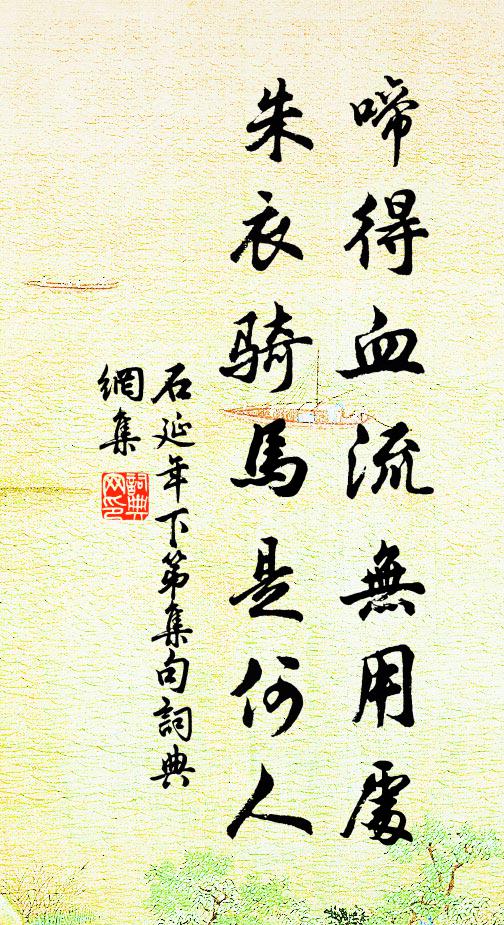 啼得血流無用處
朱衣騎馬是何人
石延年下第集句詞典
網集
詞典
网印